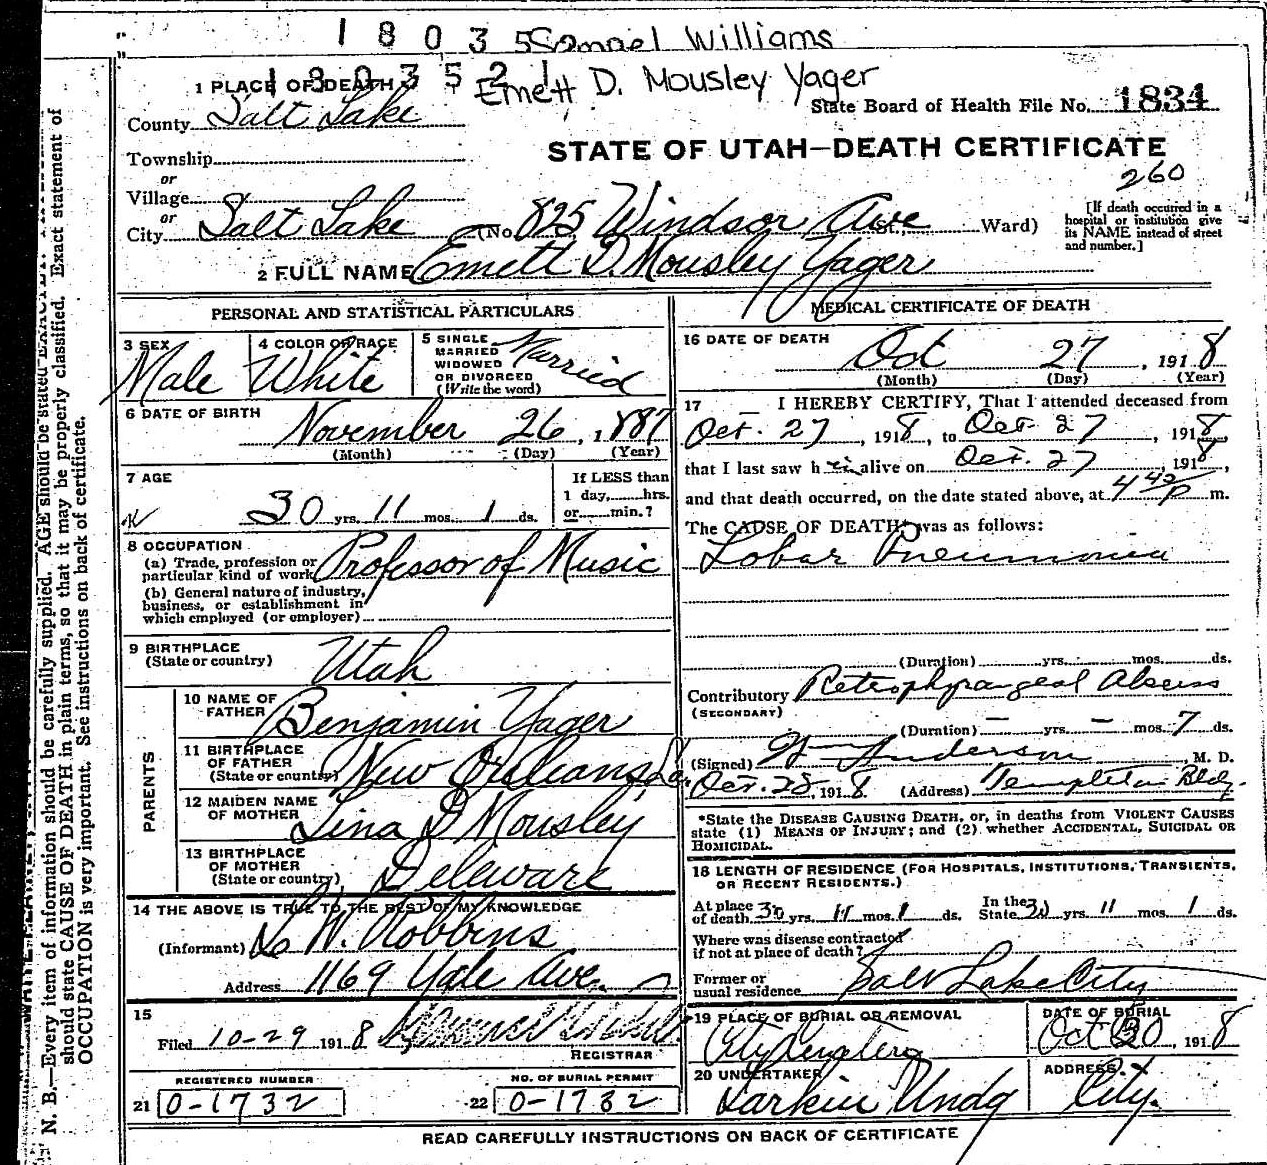 1 8 0 3 5 Samael Williams
1 8 0 3 5 2 1
Emett D. Mousley Yager
1 PLACE OF DEATH
State Board of Health File No. 1834
County Salt Lake
STATE OF UTAH—DEATH CERTIFICATE
Township
or
260
Village
or
City Salt Lake (No. 825 Windsor Ave St., Ward)
[If death occurred in a
hospital or institution give
its NAME instead of street
and number.]
2 FULL NAME Emett D. Mousley Yager
PERSONAL AND STATISTICAL PARTICULARS
3 SEX
Male
4 COLOR OR RACE
White
5 SINGLE
MARRIED
WIDOWED
OR DIVORCED
(Write the word)
Married
6 DATE OF BIRTH
November 26, 1887
(Month) (Day) (Year)
7 AGE
30 yrs. 11 mos. 1 ds.
If LESS than
1 day, hrs.
or min.?
8 OCCUPATION
(a) Trade, profession or
particular kind of work Professor of Music
(b) General nature of industry,
business, or establishment in
which employed (or employer)
9 BIRTHPLACE
(State or country)
Utah
PARENTS
10 NAME OF
FATHER
Benjamin Yager
11 BIRTHPLACE
OF FATHER
(State or country)
New Orleans, La.
12 MAIDEN NAME
OF MOTHER
Lina D Mousley
13 BIRTHPLACE
OF MOTHER
(State or country)
Deleware
14 THE ABOVE IS TRUE TO THE BEST OF MY KNOWLEDGE
(Informant) L W. Robbins
Address 1169 Yale Ave.
15
Filed 10-29 1918
REGISTRAR
REGISTERED NUMBER
21 0-1732
NO. OF BURIAL PERMIT
22 0-1732
MEDICAL CERTIFICATE OF DEATH
16 DATE OF DEATH
Oct 27, 1918
(Month) (Day) (Year)
17 I HEREBY CERTIFY, That I attended deceased from
Oct. 27, 1918, to Oct 27, 1918,
that I last saw him alive on Oct. 27, 1918,
and that death occurred, on the date stated above, at 4 42 P m.
The CAUSE OF DEATH* was as follows:
Lobar Pneumonia
(Duration) yrs. mos. ds.
Contributory Retrophyrangeal Absess
(SECONDARY)
(Duration) — yrs. — mos. 7 ds.
(Signed) Wm Anderson M. D.
Oct. 28, 1918 (Address) Templeton Bldg.
*State the DISEASE CAUSING DEATH, or, in deaths from VIOLENT CAUSES
state (1) MEANS OF INJURY; and (2) whether ACCIDENTAL, SUICIDAL OR
HOMICIDAL.
18 LENGTH OF RESIDENCE (FOR HOSPITALS, INSTITUTIONS, TRANSIENTS,
OR RECENT RESIDENTS.)
At place
of death 30 yrs. 11 mos. 1 ds.
In the
State 30 yrs. 11 mos. 1 ds.
Where was disease contracted
if not at place of death?
Former or
usual residence Salt Lake City
19 PLACE OF BURIAL OR REMOVAL
City Cemetery
DATE OF BURIAL
Oct 30, 1918
20 UNDERTAKER
Larkin Undg
ADDRESS
City.
READ CAREFULLY INSTRUCTIONS ON BACK OF CERTIFICATE
N. B.—Every item of information should be carefully supplied. AGE should be stated EXACTLY.
should state CAUSE OF DEATH in plain terms, so that it may be properly classified. Exact statement of
OCCUPATION is very important. See instructions on back of certificate.